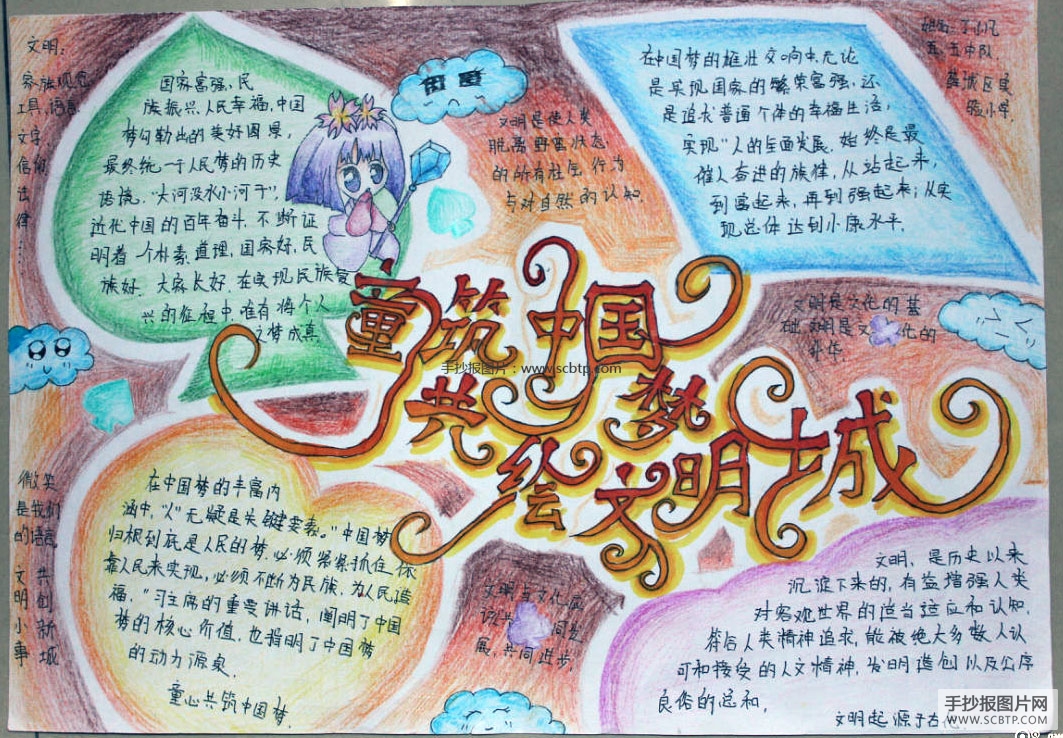 文明:
家族观念
工具,语言
文字
信仰
法
律……
国家富强、民
族振兴、人民幸福,中国
梦勾勒出的美好图景,
最终统一于人民梦的历史
语境。"大河没水小河干",
近代中国的百年奋斗,不断证
明着一个朴素道理,国家好、民
族好、大家长好,在实现民族复
兴的征程中,唯有将个人
之梦成真
文明是使人类
脱离野蛮状态
的所有社会行为
与对自然的认知
在中国梦的雄壮交响中,无论
是实现国家的繁荣富强,还
是追求普通个体的幸福生活,
实现"人的全面发展,始终是最
催人奋进的旋律,从站起来,
到富起来,再到强起来;从实
现总体达到小康水平.
五.五中队
薛城区实
验小学.
童筑中国梦
共绘文明城
手抄报图片:www.scbtp.com
文明是文化的基
础 文明是文 化的
外在.
微笑
是我们
的语言
文明小事
共创新城
在中国梦的丰富内
涵中,"人"无疑是关键要素。"中国梦
归根到底是人民的梦,必须紧紧抓住,依
靠人民来实现,必须不断为民族,为人民造
福,"习主席的重要讲话,阐明了中国
梦的核心价值,也指明了中国梦
的动力源泉.
童心共筑中国梦.
文明与文化应
该共 同发
展,共同进步,
文明,是历史以来
沉淀下来的,有益增强人类
对客观世界的适当适应和认知.
符合人类精神追求,能被绝大多数人认
可和接受的人文精神,发明造创以及公序
良俗的总和.
文明起源于古代.
手抄报图片网
WWW.SCBTP.COM